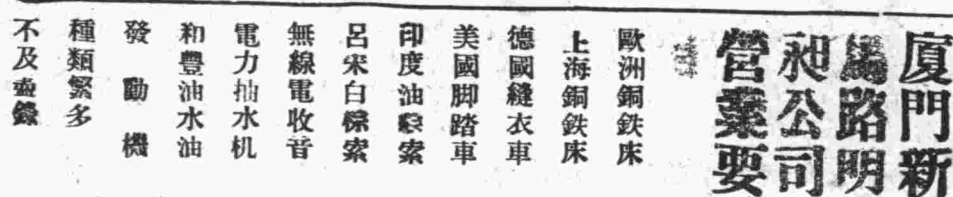 廈門新
馬路明
昶公司
營業要
歐洲銅鉄床
上海銅鉄床
德國縫衣車
美國脚踏車
印度油棕索
呂宋白棕索
無線電收音
電力抽水机
和豐油水油
發動機
種類繁多
不及壺錄